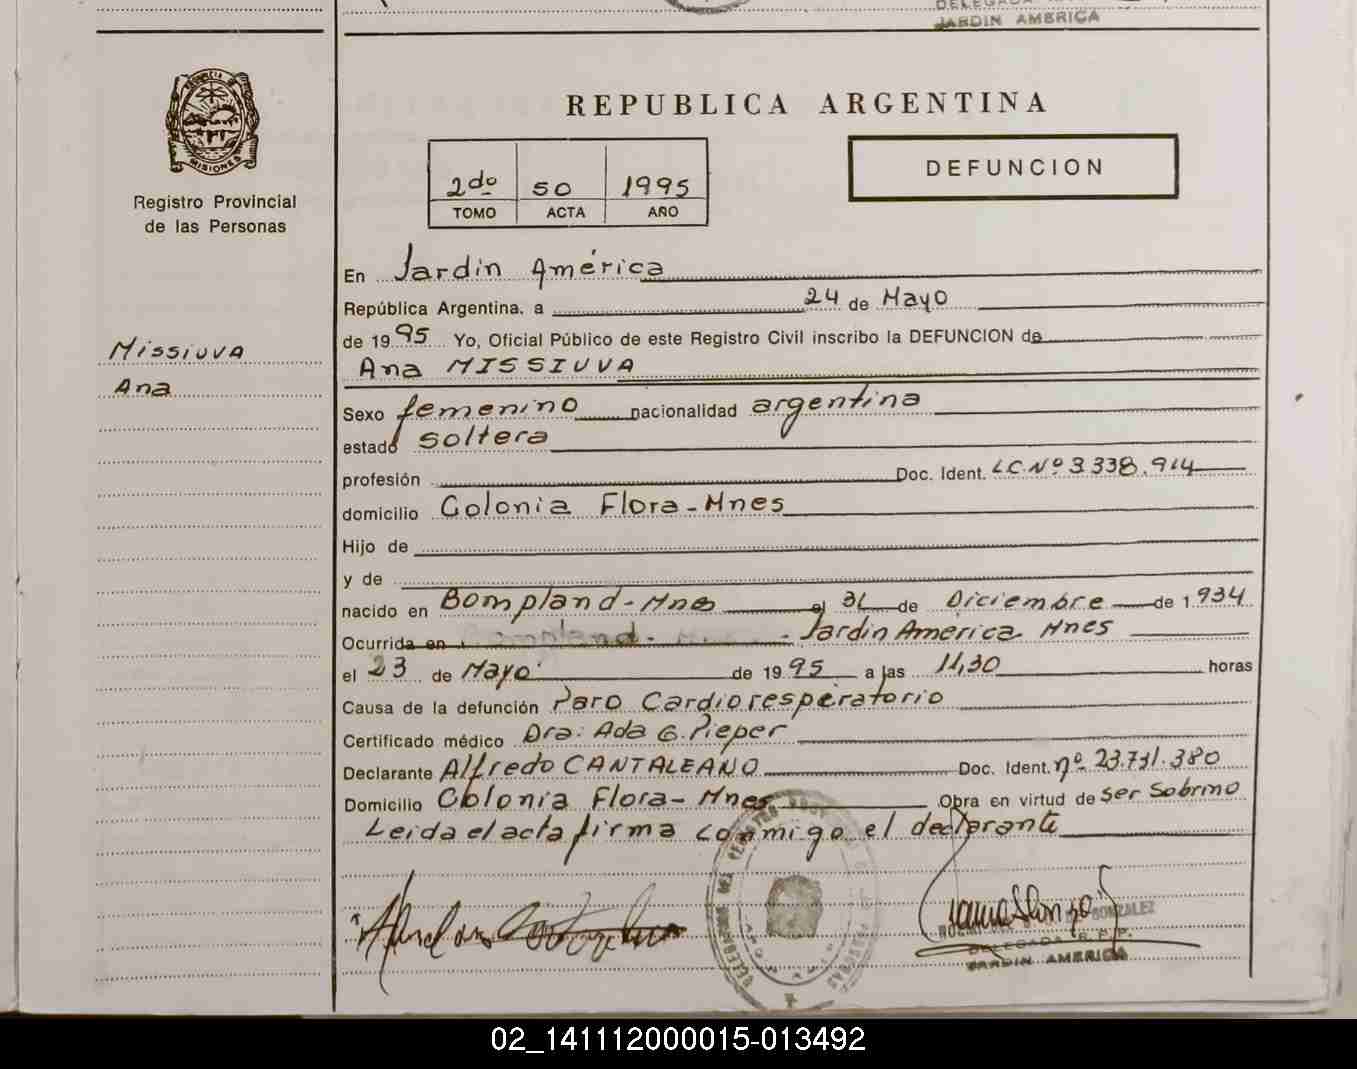 DELEGADA
JARDIN AMERICA
PROVINCIA DE
MISIONES
Registro Provincial
de las Personas
REPUBLICA ARGENTINA
2do 50 1995
TOMO ACTA AÑO
DEFUNCION
En Jardin América
República Argentina. a 24 de Mayo
de 1995 Yo, Oficial Público de este Registro Civil inscribo la DEFUNCION de
Missiuva
Ana
Ana MISSIUVA
Sexo femenino nacionalidad argentina
estado Soltera
profesión Doc. Ident. L.C.Nº 3.338.914
domicilio Colonia Flora-Mnes
Hijo de
y de
nacido en Bompland-Mnes el 31 de Diciembre de 1934
Ocurrida en Jardin America Mnes
el 23 de Mayo de 1995 a las 11,30 horas
Causa de la defunción Paro Cardioresperatorio
Certificado médico Dra. Ada G. Pieper
Declarante Alfredo CANTALEANO Doc. Ident. nº 23.731.380
Domicilio Colonia Flora-Mnes Obra en virtud de ser Sobrino
Leida el acta firma conmigo el declarante
GONZALEZ
DELEGADA R.P.P.
JARDIN AMERICA
02_141112000015-013492